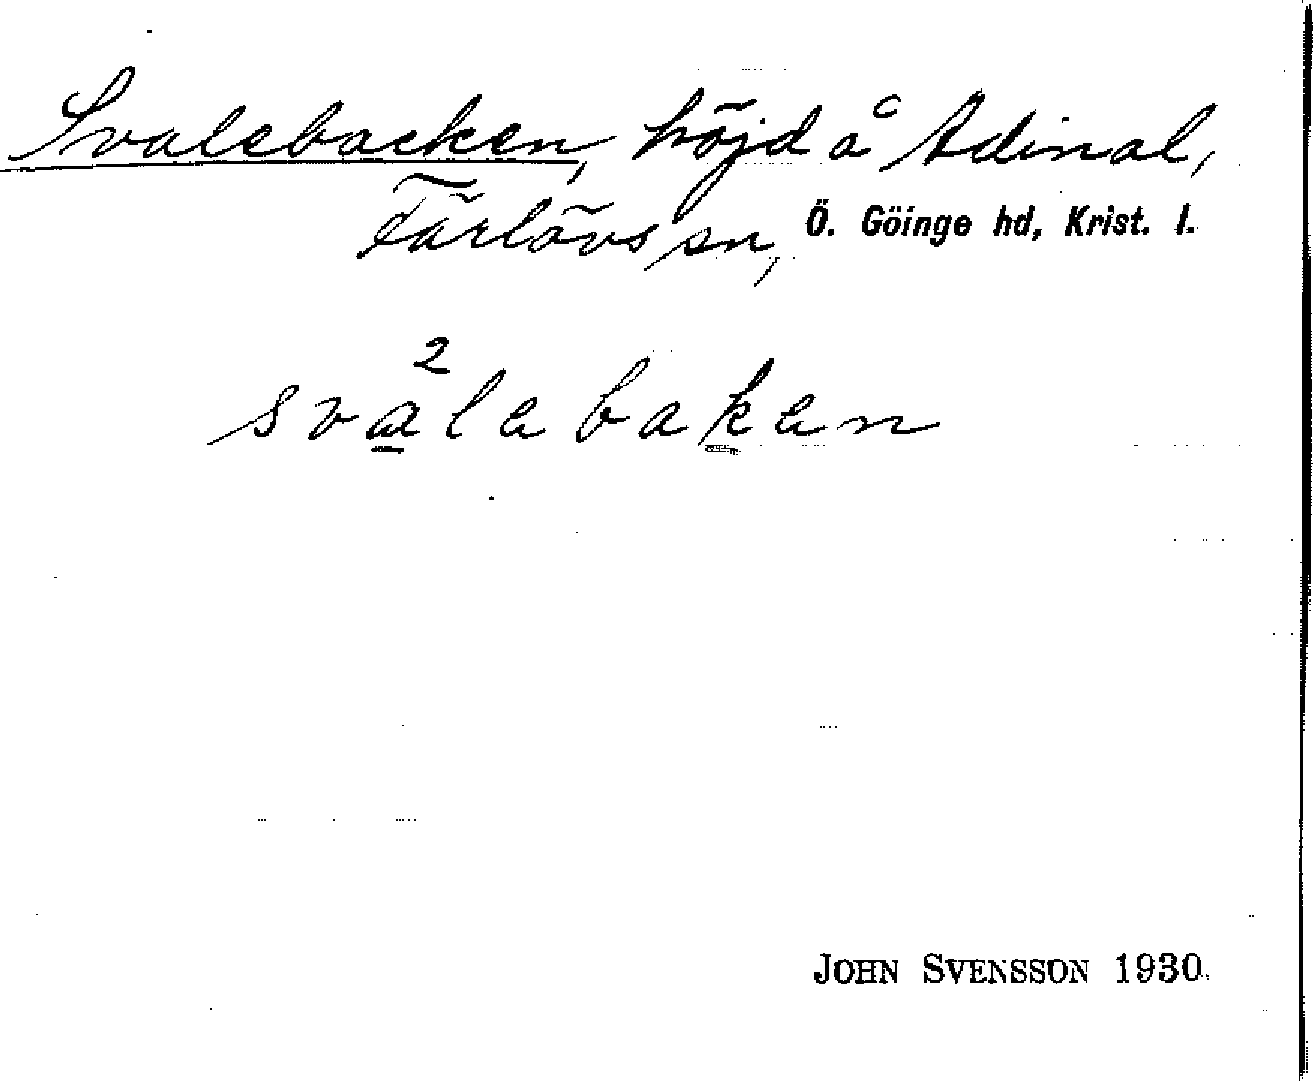 Svalebacken, höjd å Adinal,
Färlövs sn, Ö. Göinge hd, Krist. l.
2
svalebaken
JOHN SVENSSON 1930.